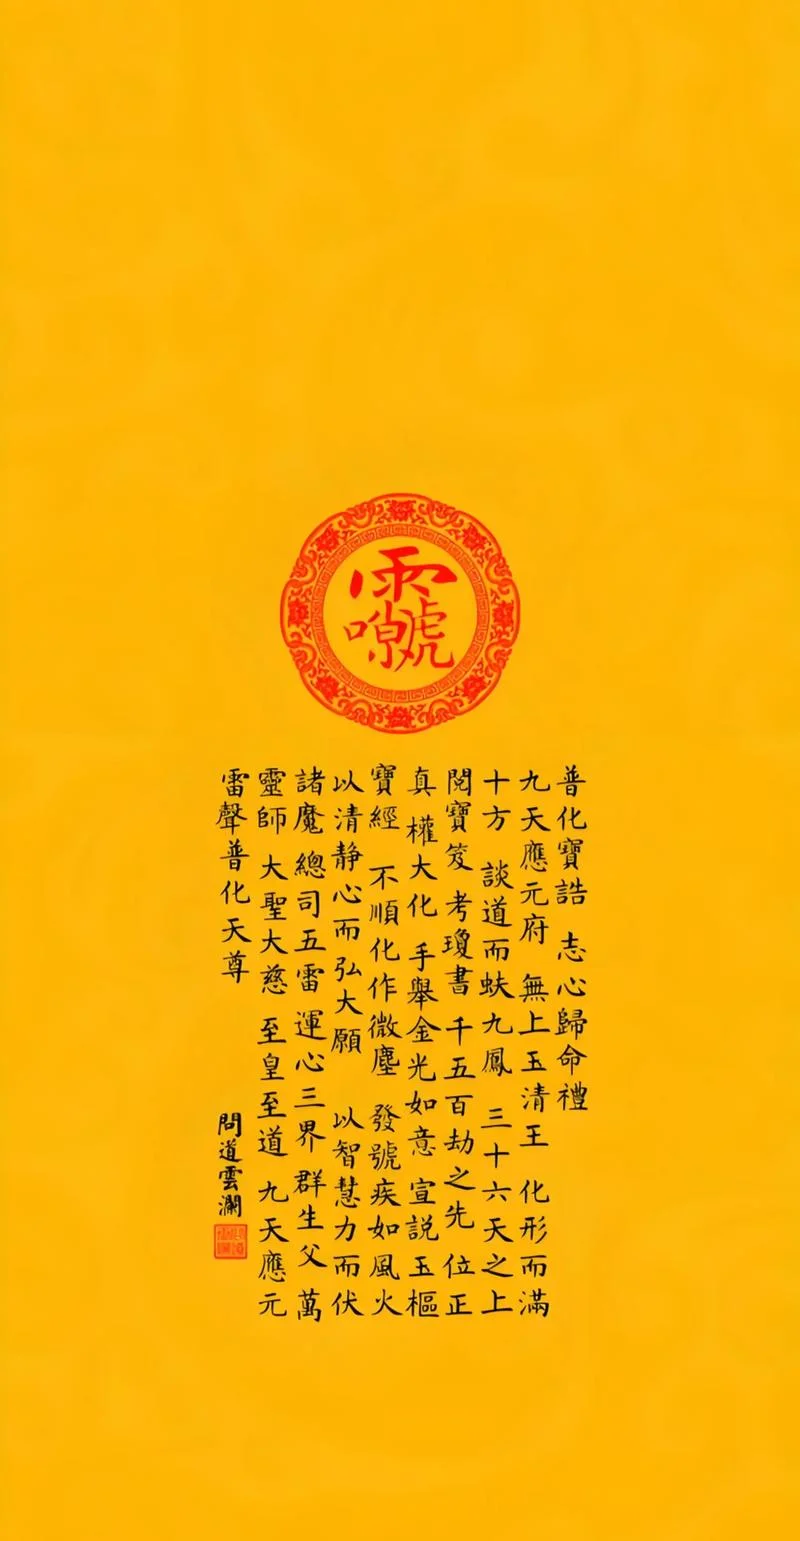 普化寶誥 志心歸命禮
九天應元府 無上玉清王 化形而滿
十方 談道而蚨九鳳 三十六天之上
閱寶笈 考瓊書 千五百劫之先 位正
真 權大化 手舉金光如意 宣説玉樞
寶經 不順化作微塵 發號疾如風火
以清静心而弘大願 以智慧力而伏
諸魔 總司五雷 運心三界 群生父 萬
靈師 大聖大慈 至皇至道 九天應元
雷聲普化天尊
問道雲瀾